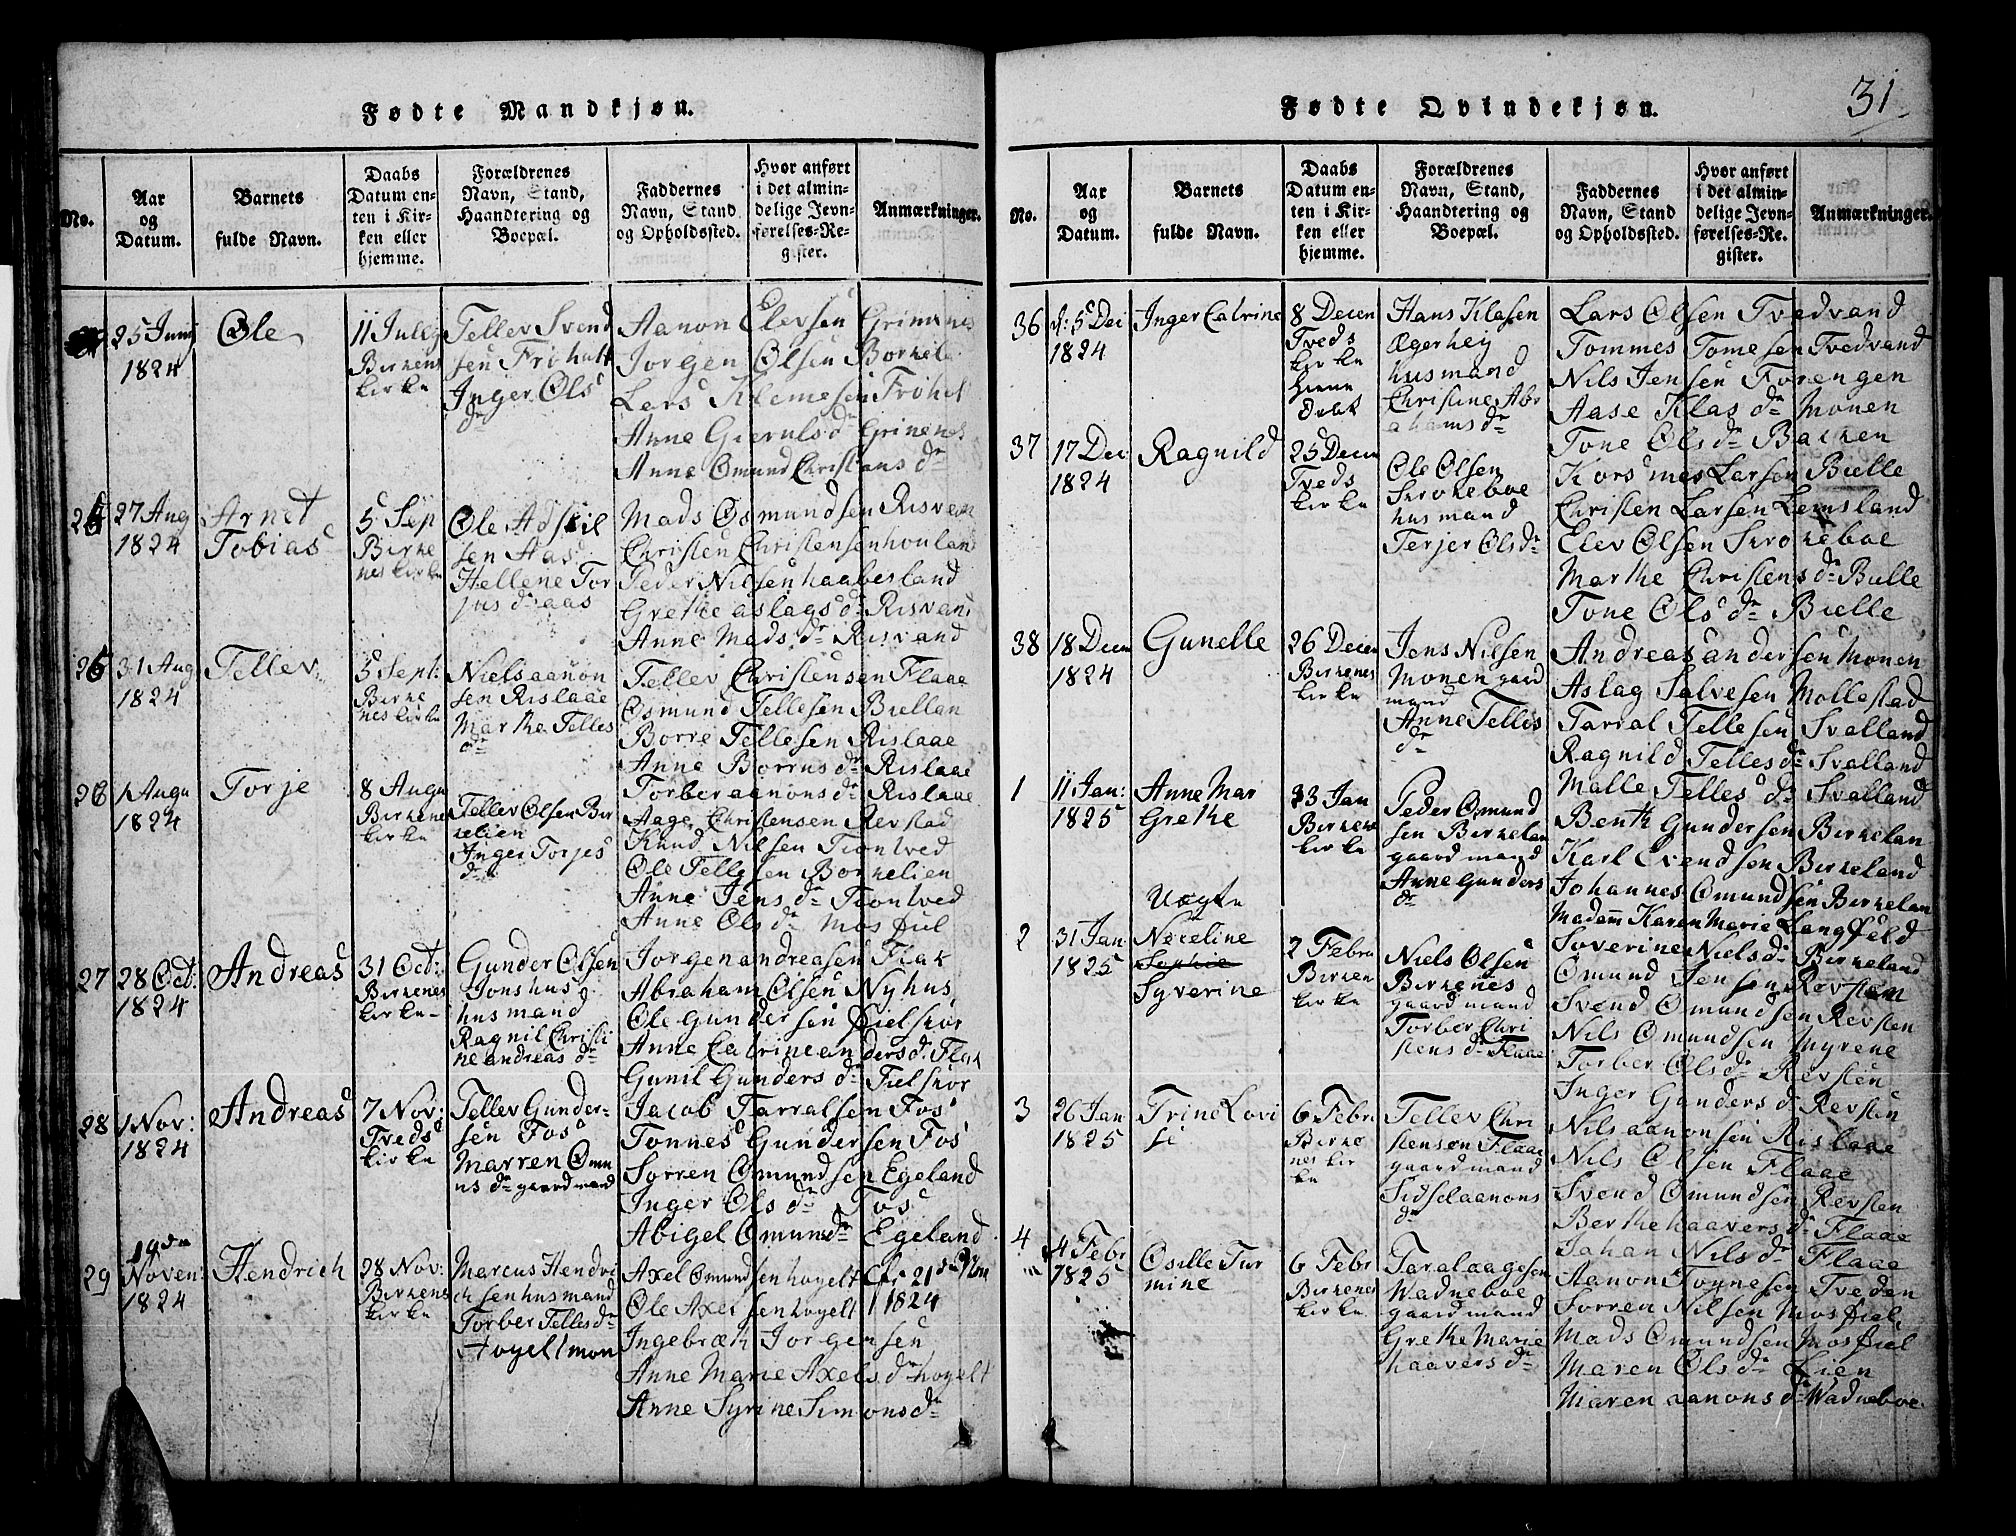 Fødte Mandkjøn.
No.
Aar
og
Datum.
Barnets
fulde Navn.
Daabs
Datum en-
ten i Kir-
ken eller
hjemme.
Forældrenes
Navn, Stand,
Haandtering og
Boepæl.
Faddernes
Navn, Stand
og Opholdssted.
Hvor anført
i det almin-
delige Jevn-
førelses-Re-
gister.
Anmærkninger.
25 Junj
1824
Ole
11 July
Birkenes
kirke
Tellev Svend
sen Frøholt
Inger Ols
dr
Aanon Elevsen Grimenes
Jorgen Olsen Borkela
Lars Klemesen Frøhol
Anne Gieruls dr Grinenes
Anne Omund Christians dr
27 Aug
1824
Arnet
Tobias
5 Sep
Birke
nes kirke
Ole Adskil
sen Aas
Hellene Tor
jus dr aas
Mads Osmundsen Risvan
Christen Christensen houlan
Peder Nilsen haabesland
Grethe aslags dr Risvand
Anne Mads dr Risvand
31 Aug
1824
Tellev
5 Sept:
Birke
nes kirke
Niels aanon
sen Rislaae
Marthe Telles
dr
Tellev Christensen Flaae
Osmund Tellesen Biellan
Borre Tellesen Rislaae
Anne Borrus dr Rislaae
Torber aanons dr Rislaae
26
1 Augu
1824
Torje
8 Augu
Birkene
kirke
Tellev Olsen Bir
kelien
Inger Torjes
dr
Aage Christensen Revstad
Knud Nilsen Tiontved
Ole Tellysen Borkelien
Anne Jens dr Tiontved
Anne Ols dr Mosfiel
27
28 Oct:
1824
Andreas
31 Oct:
Birkenes
kirke
Gunder Olsen
Jonshus
husmand
Ragnil Christi
ne andreas dr
Jorgen andreasen Flak
Abraham Olsen Nyhus
Ole Gundersen Fielskor
Anne Catrine anders d. Flak
Gunil Gunders dr Fielskor
28
1 Nov:
1824
Andreas
7 Nov:
Tveds
kirke
Tellev Gunder-
sen Fos
Marren Omu
us dr gaardmand
Jacob Tarralsen Fos
Tonnes Gundersen Fos
Sorren Omundsen Egeland
Inger Ols dr Fos
Abigel Omuns dr Egeland
29
19de
Noven:
1824
Hendrich
28 Nov:
Birkenes
kirke
Marcus Hendri
chsen husmand
Torber Telles dr
Hogeltmon
Axel Omundsen hogelt
21de Nov
1824
Ole Axelsen hogelt
Ingebræh Jorgensen
Anne Marie Axels dr hogelt
Anne Syrine Simons dr
Fødte Qvindekjøn.
31
No.
Aar
og
Datum.
Barnets
fulde Navn.
Daabs
Datum en-
ten i Kir-
ken eller
hjemme.
Forældrenes
Navn, Stand,
Haandtering og
Boepæl.
Faddernes
Navn, Stand
og Opholdssted.
Hvor anført
i det almin-
delige Jevn-
førelses-Re-
gister.
Anmærkninger.
36
d: 5 Dec
1824
Inger Catrine
8 Decen
Tveds
kirke
hieme
døbt
Hans Klasen
Ægerhey
husmand
Christine Abr
ahams dr
Lars Olsen Tvedvand
Tommes Tomesen Tvedvand
Nils Jensen Forengen
Aase Klas dr Monen
Tone Ols dr Backen
37
17 Dec
1824
Ragnild
25 Decem
Tveds
kirke
Ole Olsen
Skrokeboe
husmand
Terjer Ols dr
Korsmes Larsen Bielle
Christen Larsen Lemsland
Elev Olsen Skrokeboe
Marthe Christens dr Bielle
Tone Ols dr Bielle
38
18 Decem
1824
Gunelle
26 Decem
Birkenes
kirke
Jens Nilsen
Monen gaard
mand
Anne Telles
dr
Andreas andersen Monen
Aslag Salvesen Mollestad
Tarral Tellesen Svalland
Ragnild Telles dr Svalland
Malle Telles dr Svalland
1
11 Jan:
1825
Anne Mar
Grethe
23 Jan
Birkene
kirke
Peder Omund
sen Birkelan
gaardmand
Anne Gunders
dr
Benth Gundersen Birkelan
Karl Evendsen Birkeland
Johannes Omundsen Birkelan
Madam Karen Marie Langfeld
Soverine Niels dr Birkeland
2
31 Jan
1825
Uægte
Neceline
Sophie
Syverine
2 Febru
Birken
kirke
Niels Olsen
Birkenes
gaardmand
Torber Chri
stens dr Flaae
Omund Jensen Revsten
Svend Omundsen Revsten
Nils Omundsen Myrene
Torber Ols dr Revsten
Inger Gunders d Revsten
3
26 Jan
1825
Trine Lovi
se
6 Febr
Birke
nes kir
ke
Tellev Chri
stensen Flaae
gaardmand
Sidsel aanons
dr
Nils aanonsen Rislaae
Nils Olsen Flaae
Svend Omundsen Revsten
Berthe haavers dr Flaae
Johan Nils dr Flaae
4
4 Febr
1825
Osille Tur
mine
6 Febr
Birkenes
kirke
Taral aagesen
Wadneboe
gaardmand
Grethe Marie
haavers dr
Aanon Toynesen Tveden
Sorren Nilsen Mosfiel
Mads Omundsen Mosfiel
Maren Ols dr Lien
Maren aanons dr Wadneboe